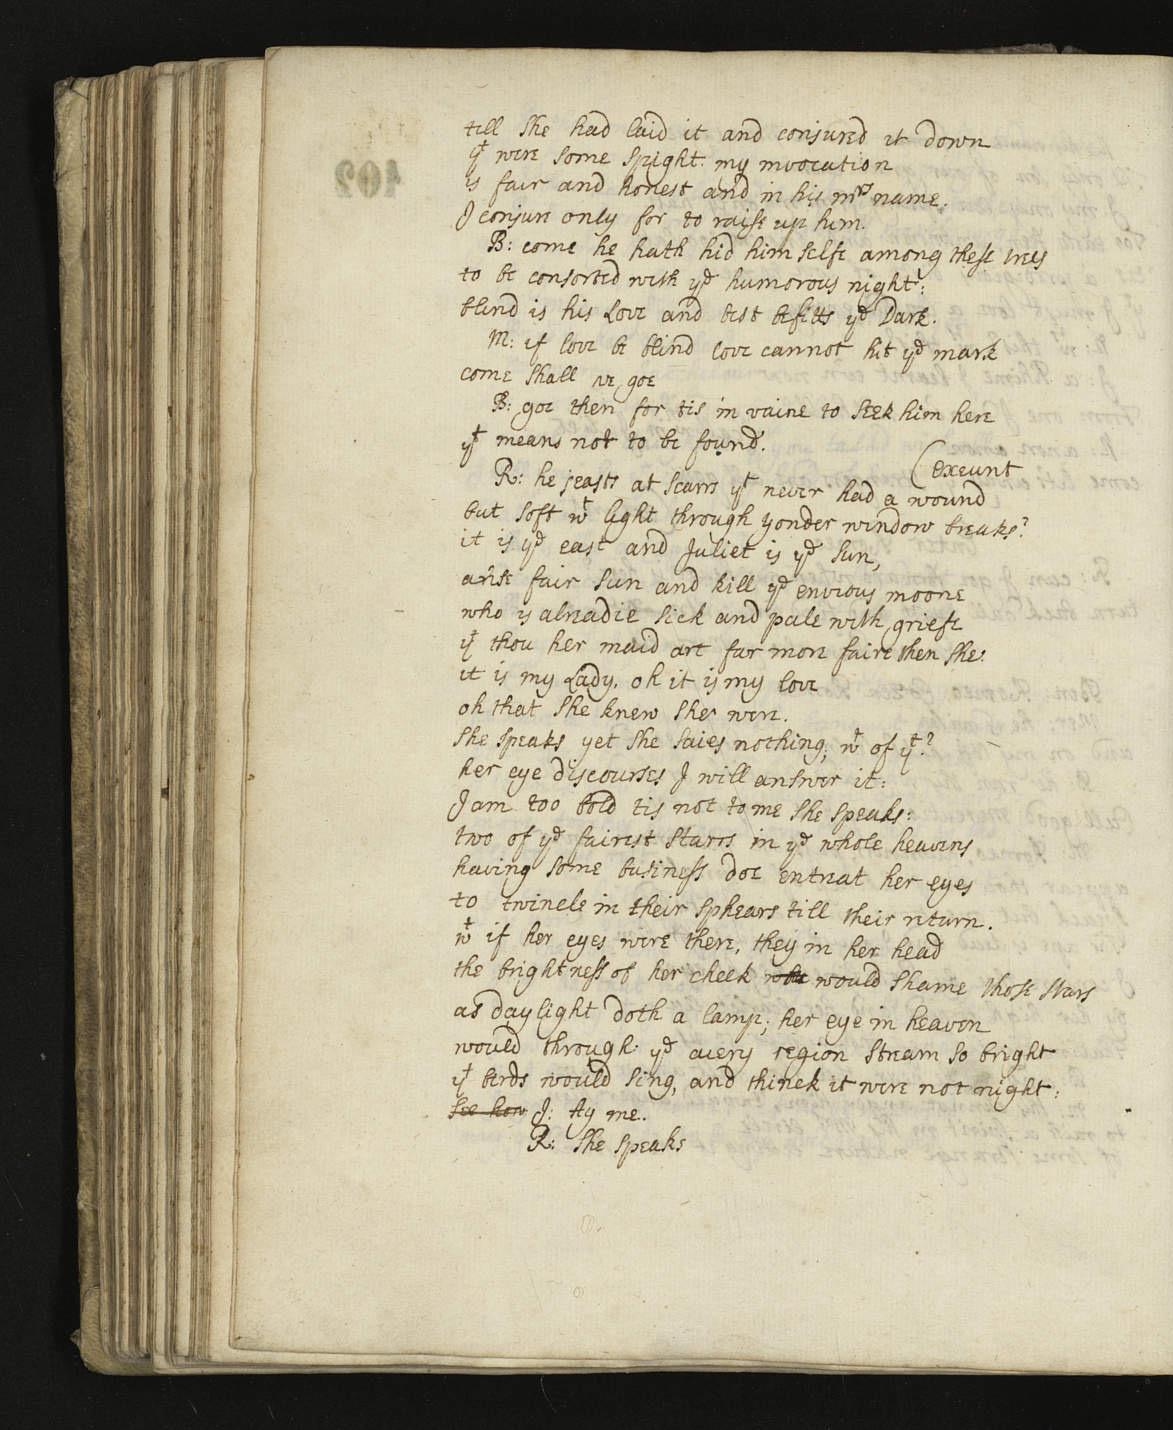 till she had laid it and conjured it down
yt were some spight. my invocation
is fair and honest and in his mrs name.
J conjure only for to raise up him.
B: come he hath hid him selfe among these trees
to be consorted with ye humorous night:
blind is his Love and best befitts ye Dark.
M: if love be blind love cannot hit ye mark
come shall we goe
B: goe then for tis in vaine to seek him here
yt means not to be found.
(Exeunt
R: he jeasts at scarrs yt never had a wound
but soft wt light through yonder window breaks?
it is ye east and Juliet is ye sun,
arise fair sun and kill ye envious moone
who is alreadie sick and pale with griefe
yt thou her maid art far more faire then she:
it is my Lady. oh it is my love
oh that she knew she were.
she speaks yet she saies nothing; wt of yt?
her eye discourses J will answer it:
J am too bold tis not to me she speaks:
two of ye fairest starrs in ye whole heavens
having some business doe entreat her eyes
to twincle in their sphears till their return.
wt if her eyes were there, they in her head
the brightness of her cheek would shame those stars
as daylight doth a lamp; her eye in heaven
would through ye aiery region stream so bright
yt birds would sing, and thinck it were not night:
see how J: Ay me.
R: she speaks
402